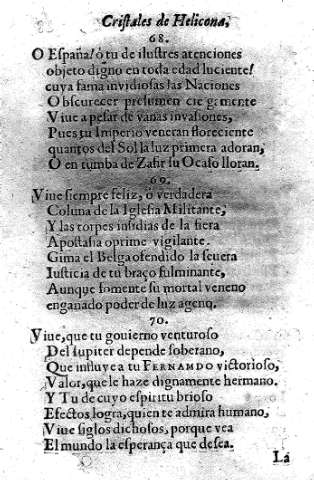 Cristales de Helicona,
68.
O España! ò tu de ilustres atenciones
objeto digno en toda edad luciente!
cuya fama invidiosas las Naciones
Obscurecer presumen
Viue a pesar de vanas invasiones,
Pues tu Imperio veneran floreciente
quantos del Sol la luz primera adoran,
O en tumba de Zafir su Ocaso lloran.
69.
Viue siempre feliz, ò verdadera
Coluna de la Iglesia Militante,
Y las torpes insidias de la fiera
Apostasia oprime vigilante.
Gima el Belga ofendido la seuera
Iusticia de tu braço fulminante,
Aunque fomente su mortal veneno
enganado poder de luz agenq.
70.
Viue, que tu gouierno venturoso
Del Iupiter depende soberano,
Que influye a tu FERNAMDO victorioso,
Valor, que le haze dignamente hermano.
Y Tu de cuyo espiritu brioso
Efectos logra, quien te admira humano,
Viue siglos dichosos, porque vea
El mundo la esperança que desea.
La